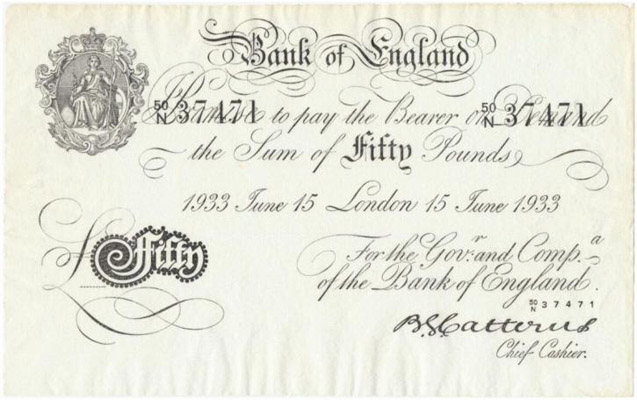 Bank of England
50/N 37471 I Promise to pay the Bearer on Demand 50/N 37471
the Sum of Fifty Pounds
1933 June 15 London 15 June 1933
For the Govr. and Compa.
of the Bank of England.
£ Fifty
50/N 37471
B G Catterns
Chief Cashier.